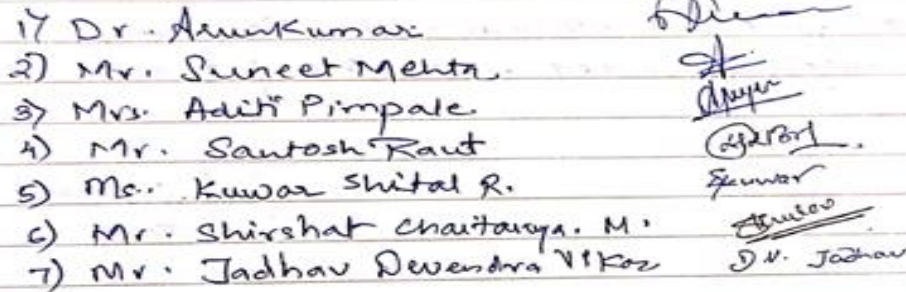 1) Dr. Arunkumar
2) Mr. Suneet Mehta.
3) Mrs. Aditi Pimpale.
4) Mr. Santosh Raut
5) Ms. Kuwar Shital R. Skuwar
6) Mr. Shirshat Chaitanya. M.
7) Mr. Jadhav Devendra Vikas D.V. Jadhav